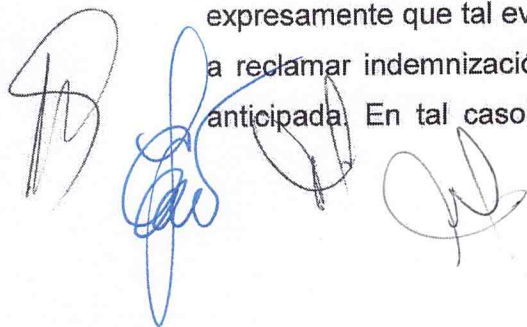 expresamente que tal ev
a reclamar indemnizació
anticipada. En tal caso